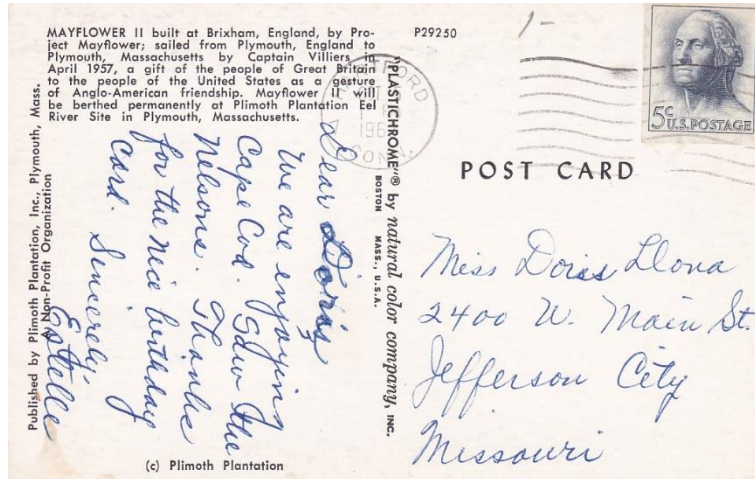 MAYFLOWER II built at Brixham, England, by Pro-
ject Mayflower; sailed from Plymouth, England to
Plymouth, Massachusetts by Captain Villiers in
April 1957, a gift of the people of Great Britain
to the people of the United States as a gesture
of Anglo-American friendship. Mayflower II will
be berthed permanently at Plimoth Plantation Eel
River Site in Plymouth, Massachusetts.
P29250
1-
5c
U.S. POSTAGE
CONN.
POST CARD
"PLASTICHROME"® by natural color company, INC.
BOSTON MASS., U.S.A.
Published by Plimoth Plantation, Inc., Plymouth, Mass.
A Non-Profit Organization
Dear Doris
We are enjoying
Cape Cod. Saw the
Nelsons. Thanks
for the nice birthday
card. Sincerely,
Estelle
Miss Doris Llona
2400 W. Main St.
Jefferson City
Missouri
(c) Plimoth Plantation